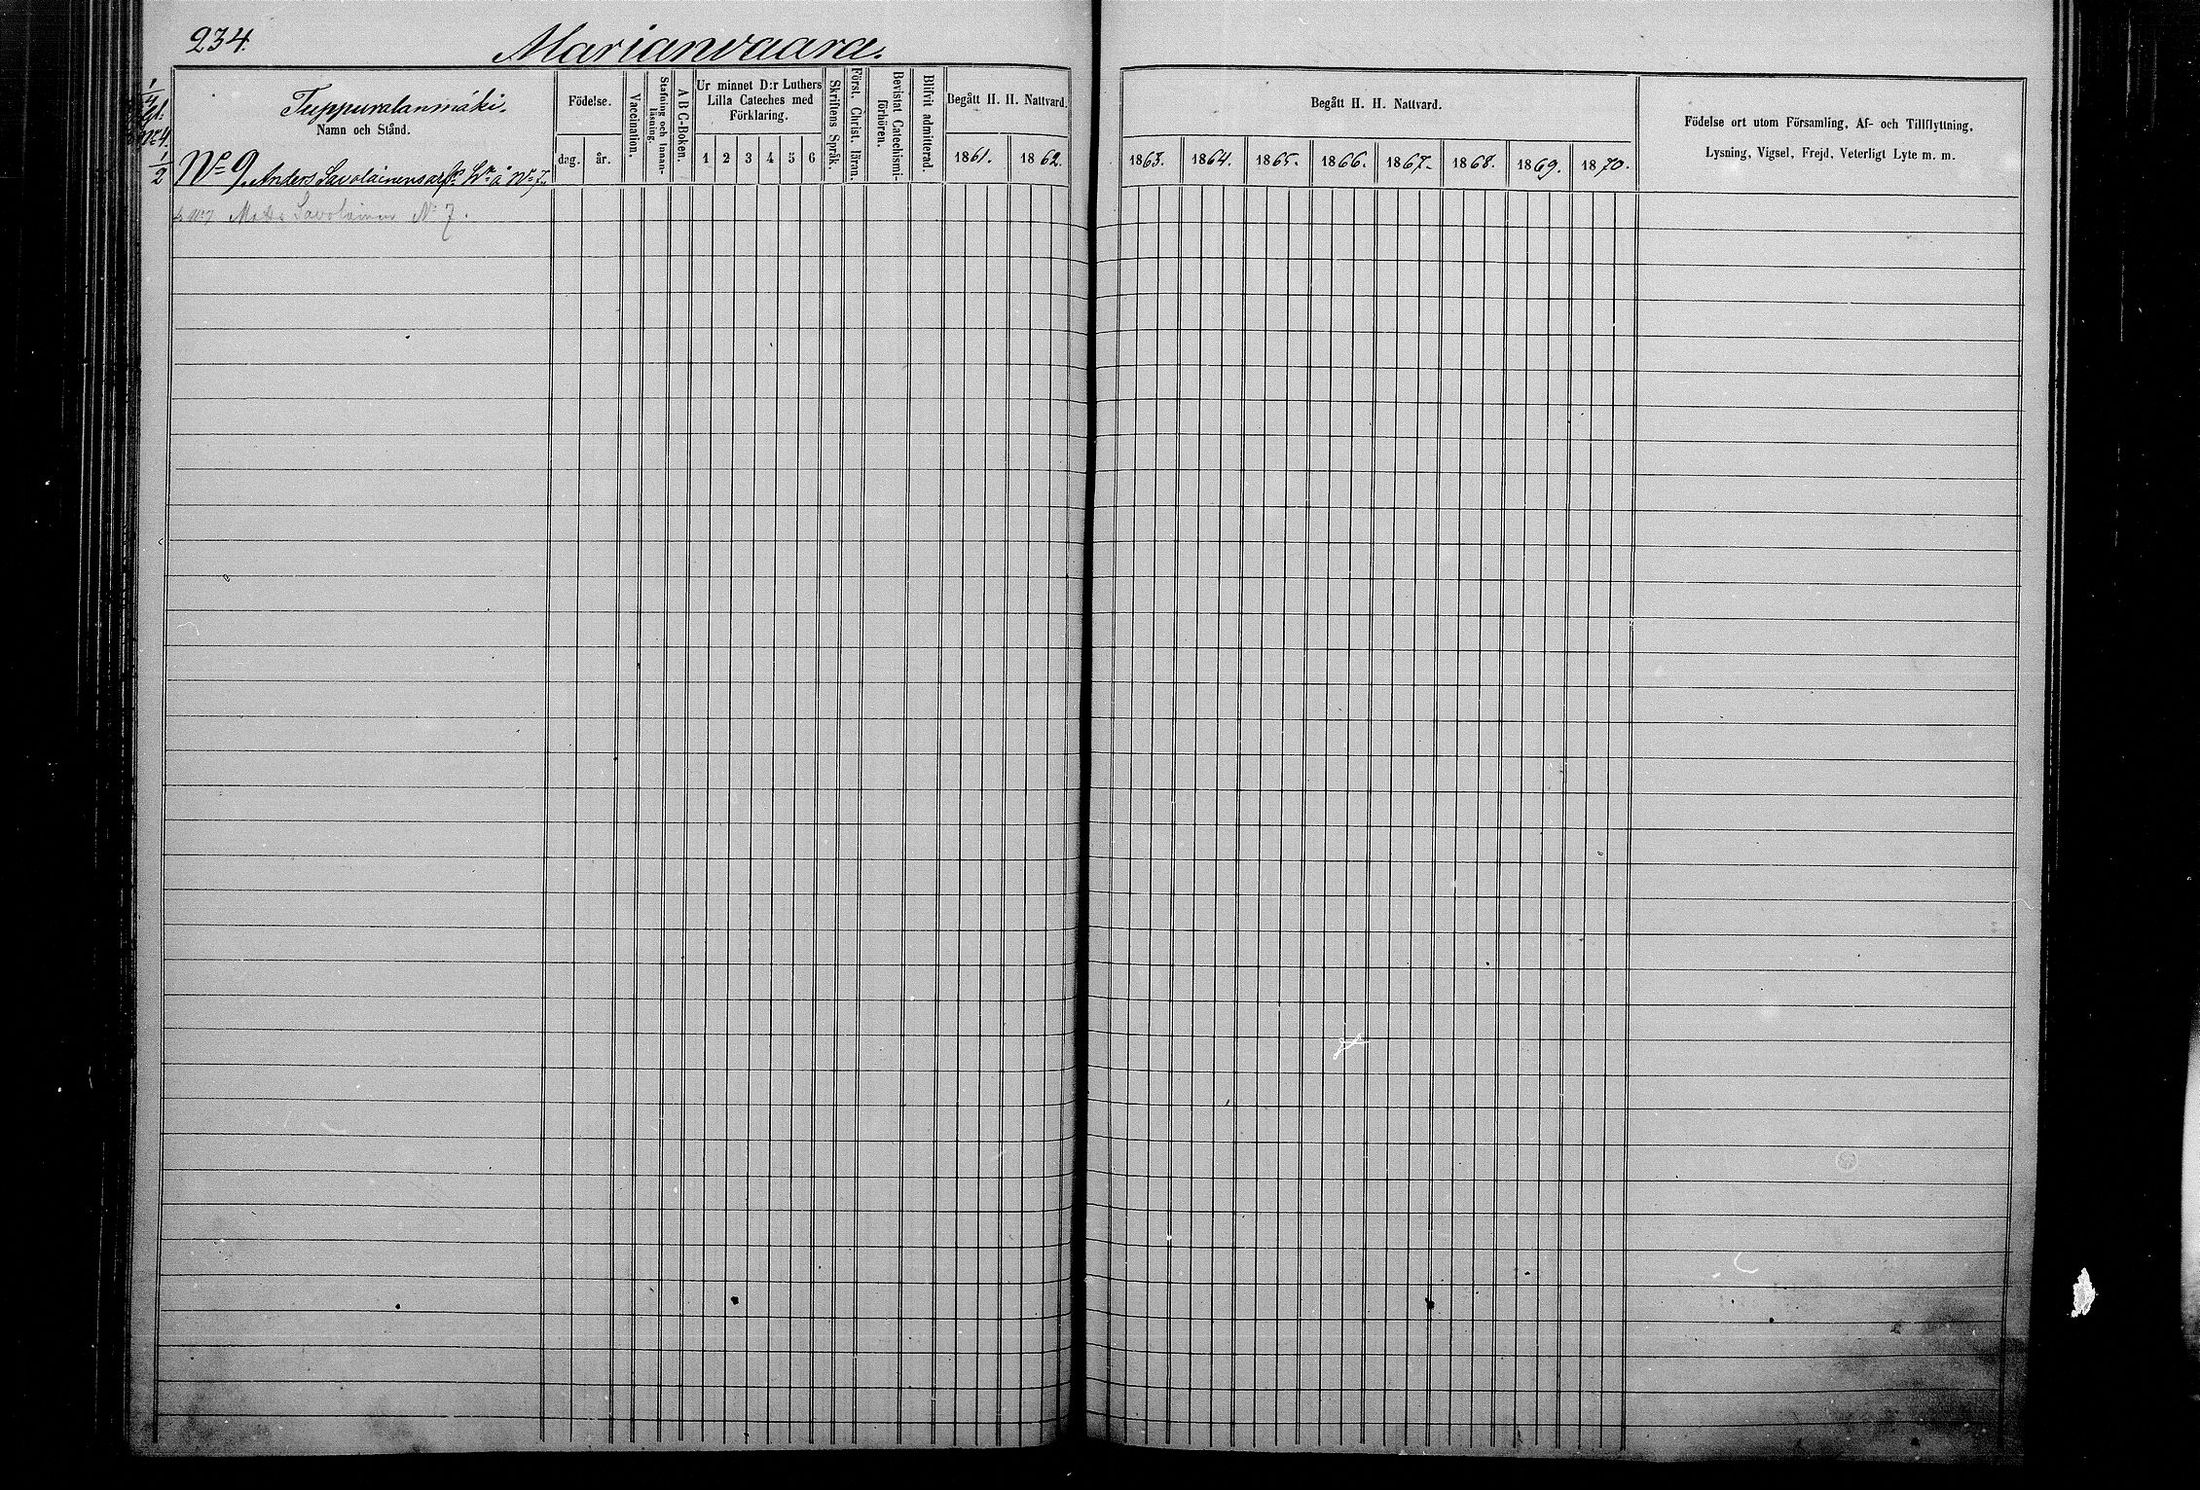 234.
Marianvaara.
Tuppuralanmäki.
Namn och Stånd.
Födelse.
dag.
år.
Vaccination.
Stafning och Innan-
läsning.
A B C-Boken.
Ur minnet D:r Luthers
Lilla Cateches med
Förklaring.
1 2 3 4 5 6
Skriftens Språk.
Först. Christ. läran.
Bevistat Catechismi-
förhören.
Blifvit admitterad.
Begått H. H. Nattvard.
1861. 1862.
Begått H. H. Nattvard.
1863. 1864. 1865. 1866. 1867. 1868. 1869. 1870.
Födelse ort utom Församling, Af- och Tillflyttning,
Lysning, Vigsel, Frejd, Veterligt Lyte m. m.
1/4
1/2
No 9. Anders Savolainens å No 7.
Savolainen No 7.